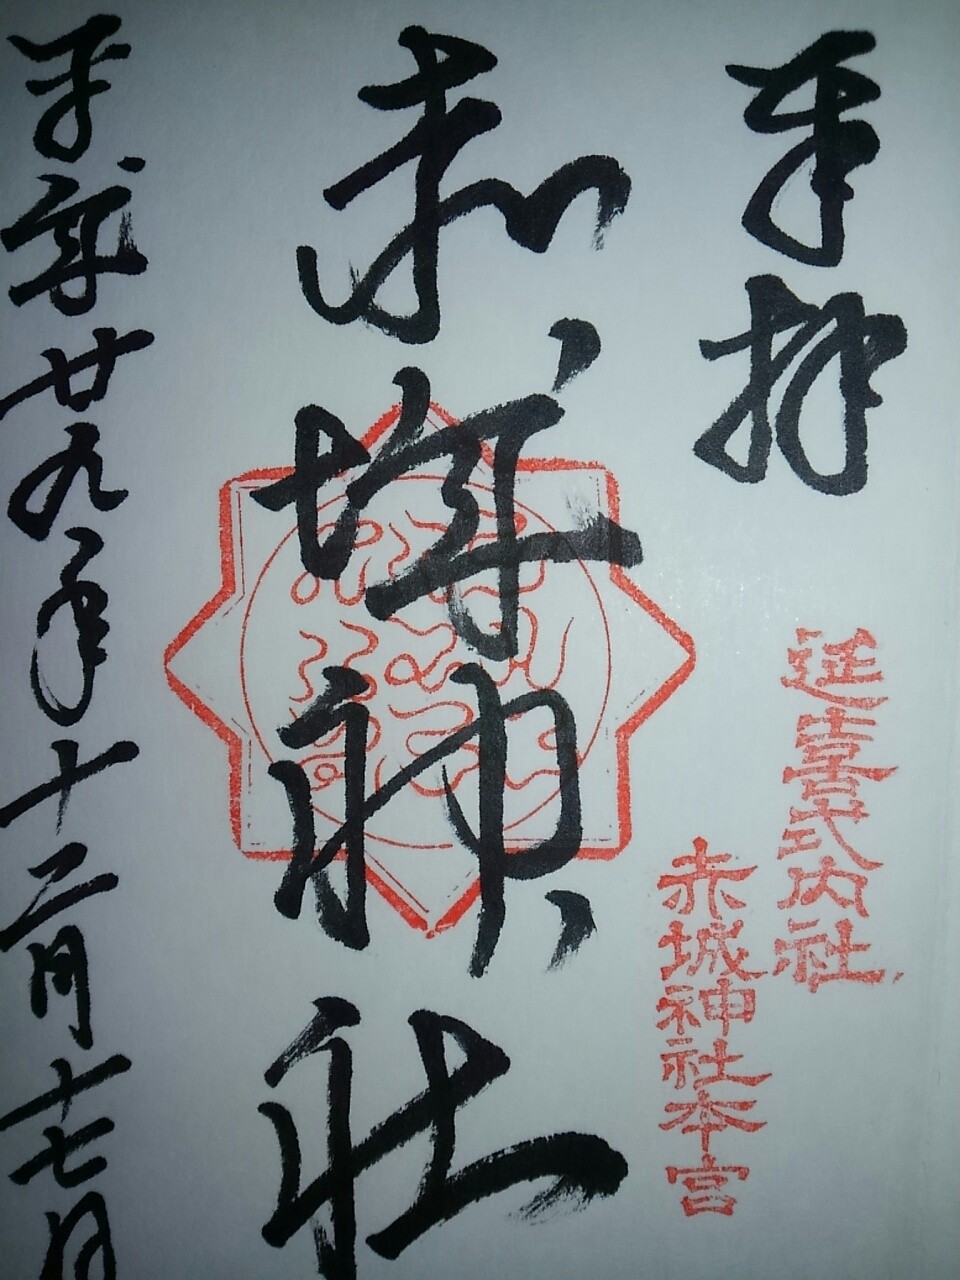 奉拝
延喜式内社
赤城神社本宮
赤城神社
平成廿九年十二月十七日